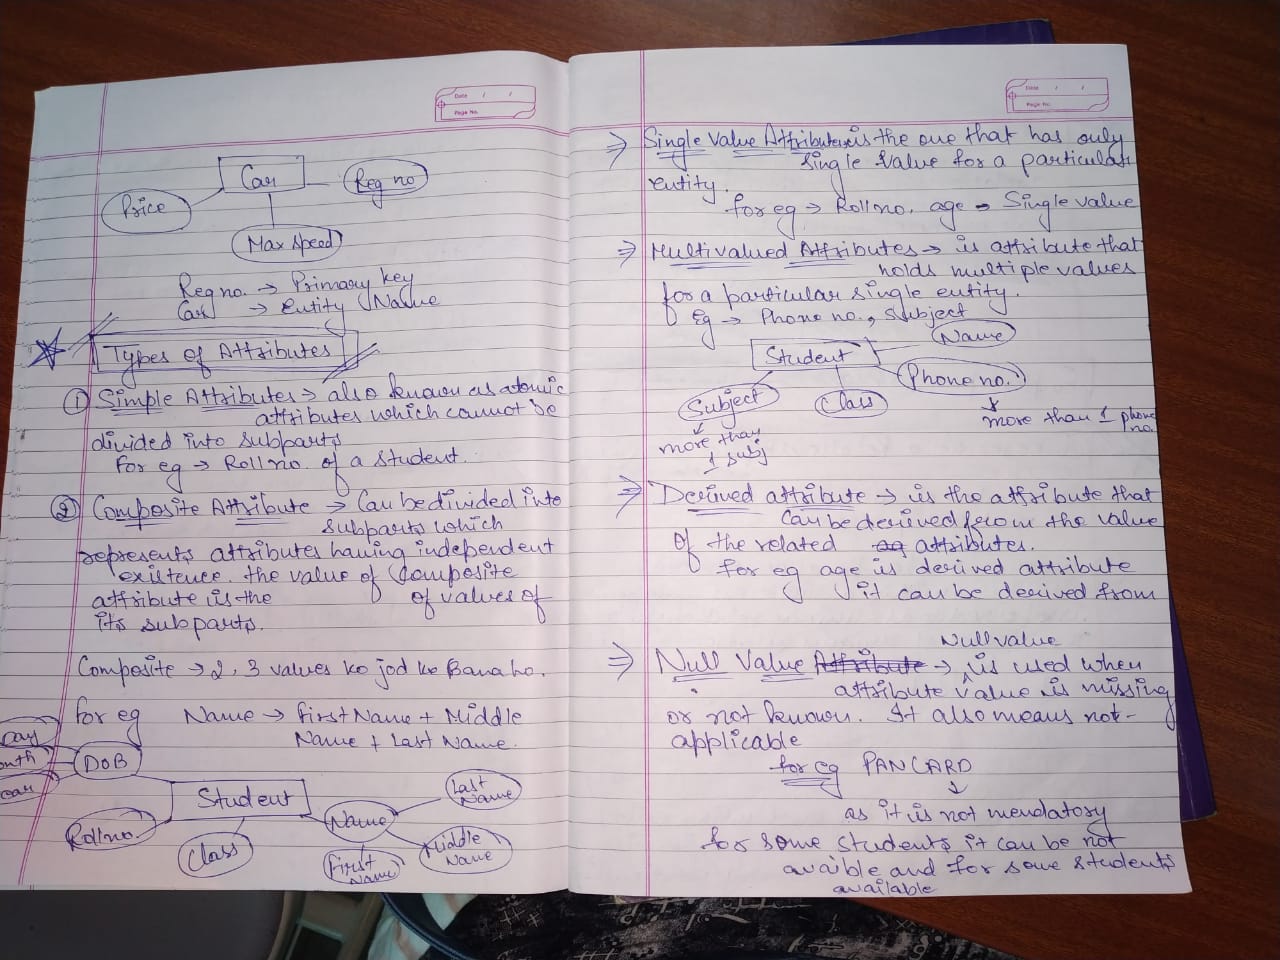 Date / /
Page No.
Car
Reg no
Price
Max Speed
Reg no. → Primary key
Car → Entity Name
Types of Attributes
① Simple Attributes → also known as atomic
attributes which cannot be
divided into subparts
for eg → Roll no. of a student.
② Composite Attribute → Can be divided into
subparts which
represents attributes having independent
existence. the value of Composite
attribute is the of values of
its subparts.
Composite → 2, 3 values ko jod ke Bana ho.
for eg Name → First Name + Middle
Name + Last Name.
DOB
Student
Last
Name
Name
Roll no.
Class
First
Name
Middle
Name
Date / /
Page No.
⇒ Single Value Attributes is the one that has only
Single Value for a particular
entity.
for eg → Roll no. age → Single value
⇒ Multivalued Attributes → is attribute that
holds multiple values
for a particular single entity.
Eg → Phone no., Subject
Name
Student
Phone no.
Subject
Class
more than 1 phone
no.
more than
1 subj
⇒ Derived attribute → is the attribute that
can be derived from the value
of the related attributes.
for eg age is derived attribute
it can be derived from
Null value
⇒ Null Value Attribute → is used when
attribute value is missing
or not known. It also means not-
applicable
for eg PANCARD
↓
as it is not mendatory
for some students it can be not
avaible and for some students
available